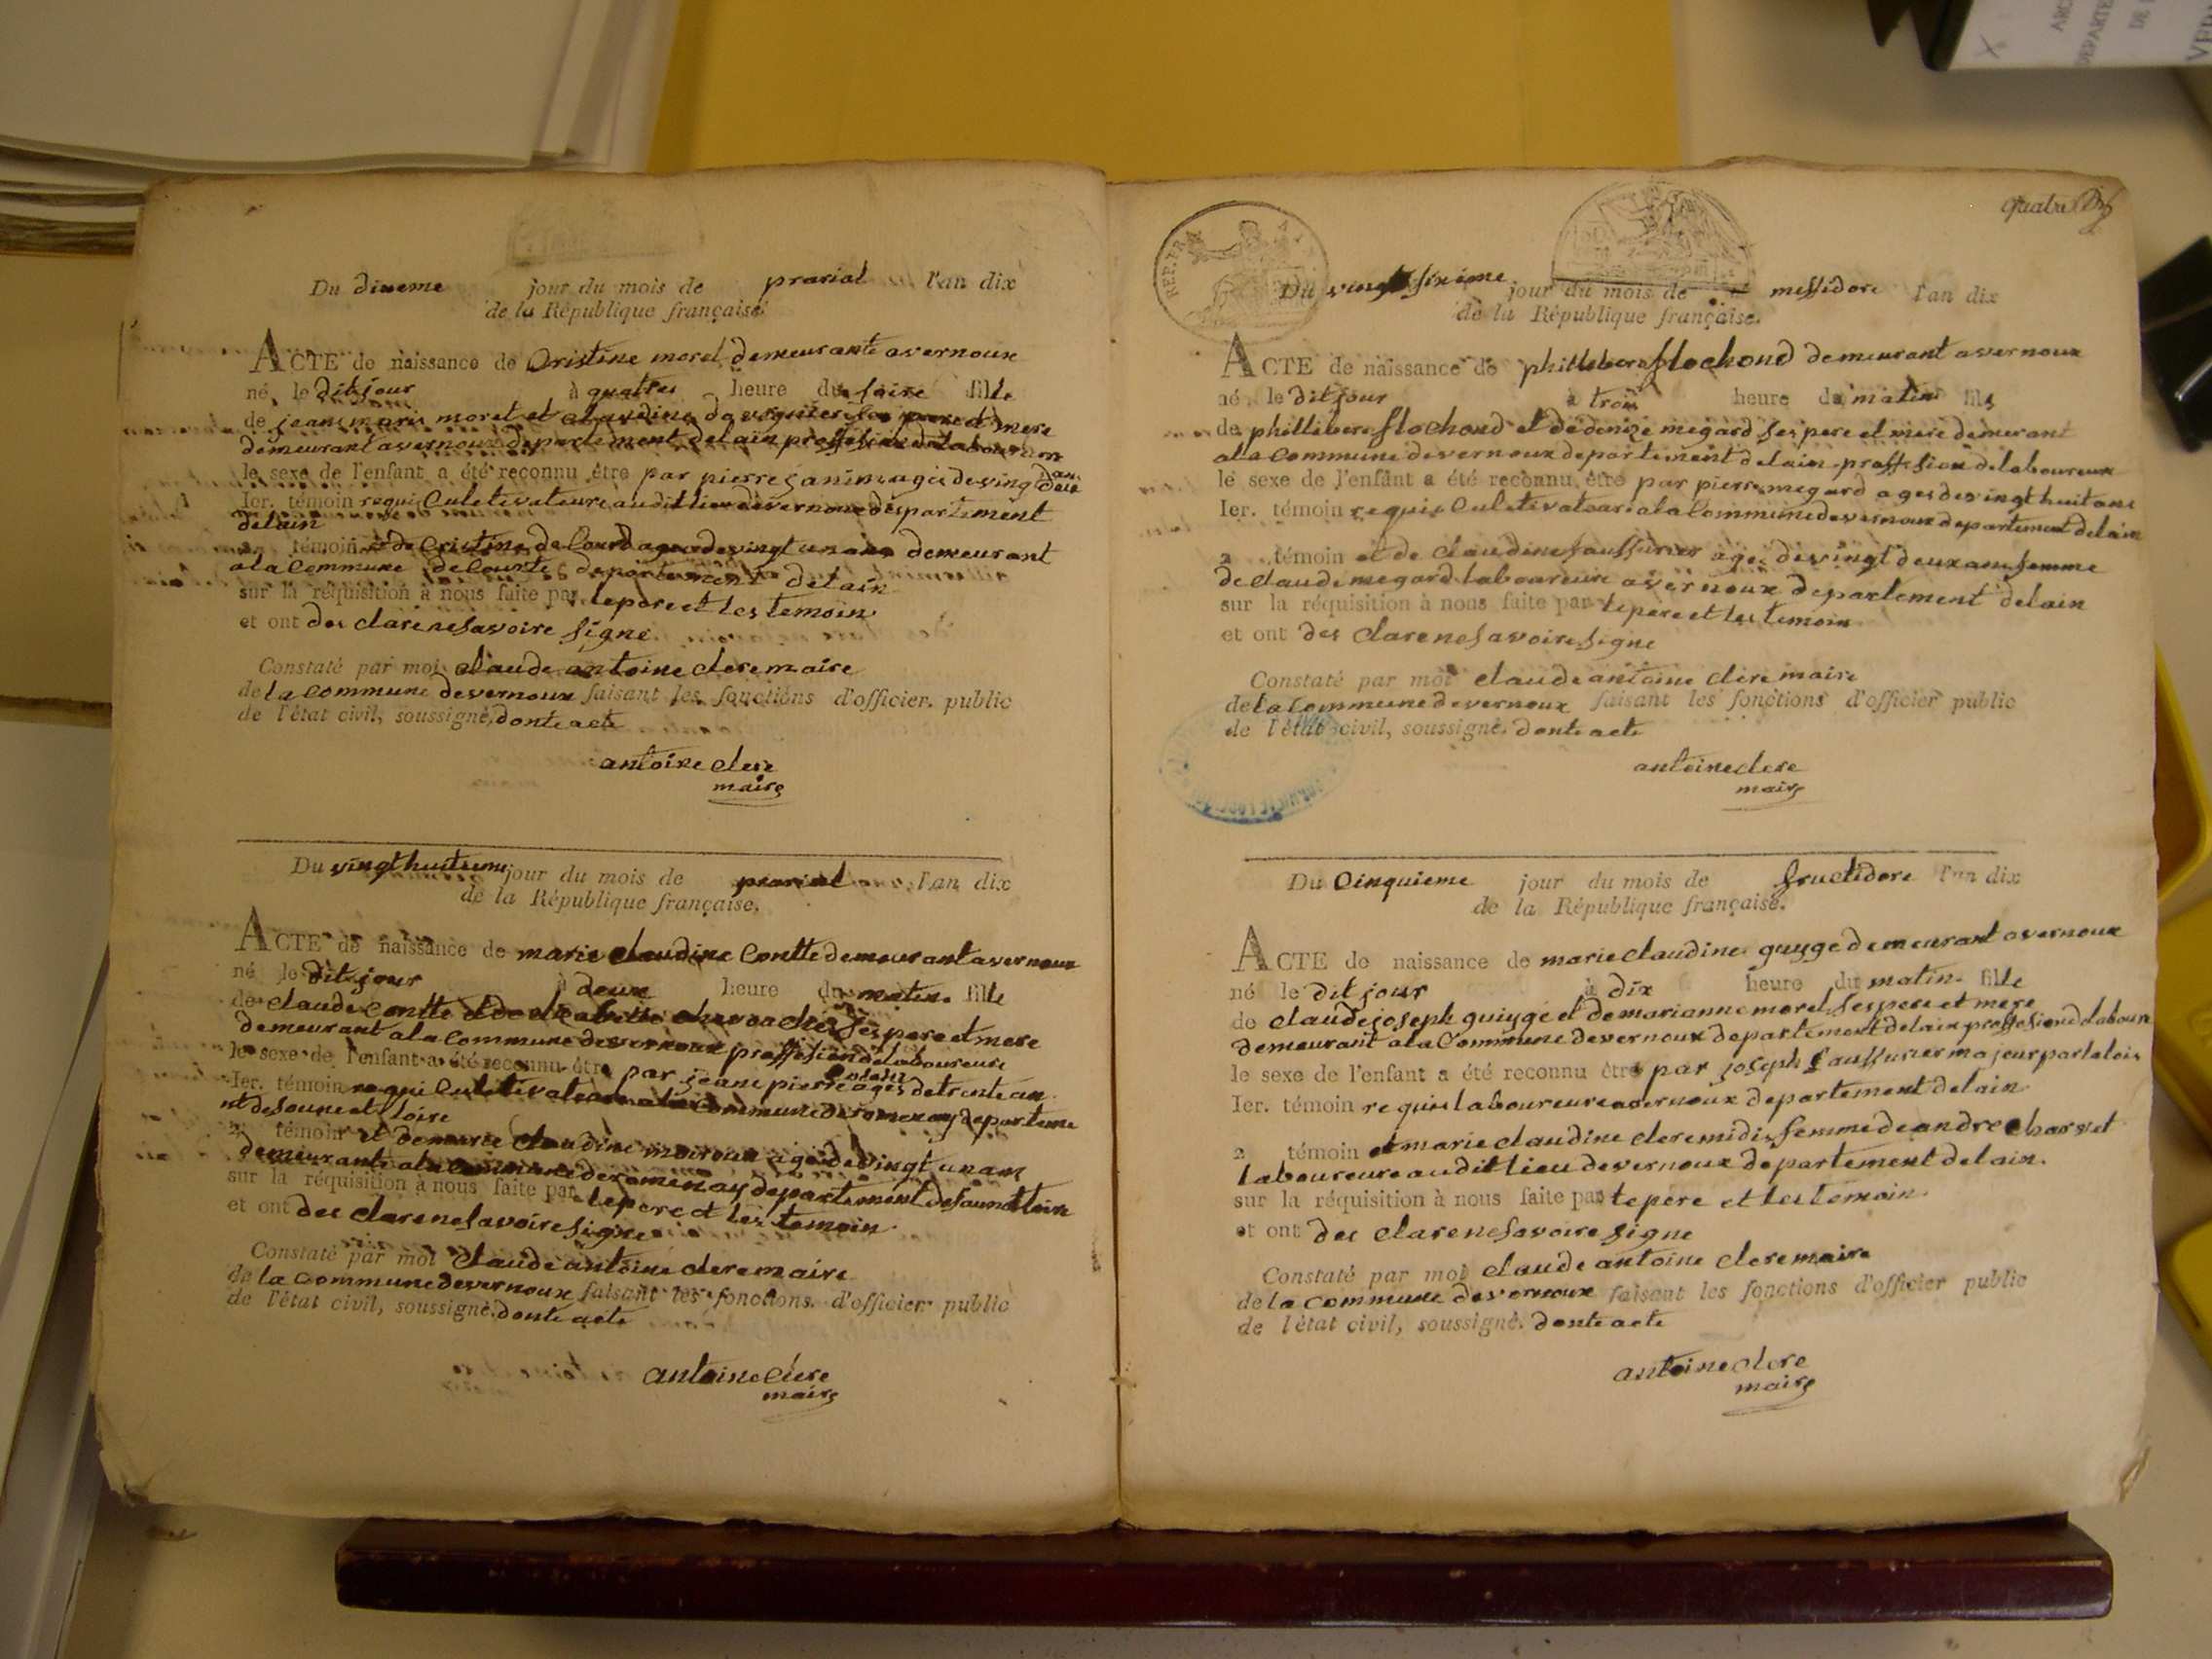 Du dixeme jour du mois de prarial l'an dix
de la République française.
ACTE de naissance de Cristine morel demeurante avernoux
né le dit jour à quatres heure du soire fille
de jeans maris morel et claudine
demeurant avernoux departement delain proffesion delaboureur
le sexe de l'enfant a été reconnu être par pierre janin agés deving deux ans
Ier. témoin requis Culetivateure audit lieu devernoux departement
delain
2 témoin et de Cristine agee devingt un ans demeurant
ala Commune de Courte departement delain
sur la réquisition à nous faite par lepere et les temoin
et ont des clare nesavoire signe
Constaté par moi claude antoine clere maire
de la commune devernoux faisant les fonctions d'officier public
de l'état civil, soussigné, donte acte
antoine clere
maire
Du vingt huitieme jour du mois de prarial l'an dix
de la République française.
ACTE de naissance de marie claudine Contte demeurant avernoux
né le dit jour à deux heure du matin fille
de claude contte et de ses pere et mere
demeurant ala Commune devernoux proffesion delaboureure
le sexe de l'enfant a été reconnu être par jeane pierre agés detrente an
Ier. témoin requi Culetivateur ala Commune deromenay departeme
nt desoune et loire
2 témoin et demarie claudine agéé devingt un ans
demeurante ala Commune deromenay departement desaune et loire
sur la réquisition à nous faite par lepere et les temoin
et ont des clare nesavoire signe
Constaté par moi claude antoine clere maire
de la commune devernoux faisant les fonctions d'officier public
de l'état civil, soussigné. donte acte
antoine clere
maire
quatre
REP. FRA
Du vingt sixieme jour du mois de messidore l'an dix
de la République française.
ACTE de naissance de phillibere flochond demeurant avernoux
né le dit jour à trois heure du matin fils
de phillibere flochond et dedenize megard ses pere et mere demeurant
ala commune devernoux departement delain proffesion delaboureux
le sexe de l'enfant a été reconnu être par pierre megard ages devingt huit ans
Ier. témoin requis Culetivateure ala Commune devernoux departement delain
2 témoin et de claudine saussurier agés devingt deux ans femme
de claude megard laboureure avernoux departement delain
sur la réquisition à nous faite par lepere et les temoin
et ont des clare nesavoire signe
Constaté par moi claude antoine clere maire
de la commune devernoux faisant les fonctions d'officier public
de l'état civil, soussigné. donte acte
antoine clere
maire
Du Cinquieme jour du mois de fructidore l'an dix
de la République française.
ACTE de naissance de marie claudine guyge demeurant avernoux
né le dit jour à dix heure du matin fille
de claude joseph guiygé et demarianne morel ses pere et mere
demeurant ala Commune devernoux departement delain proffesion delaboure
le sexe de l'enfant a été reconnu être par joseph saussurier majeur parlalois
Ier. témoin requis laboureure avernoux departement delain
2 témoin et marie claudine clere midis femme de andre charvet
laboureure audit lieu devernoux departement delain.
sur la réquisition à nous faite par lepere et les temoin
et ont des clare nesavoire signe
Constaté par moi claude antoine clere maire
de la commune devernoux faisant les fonctions d'officier public
de l'état civil, soussigné. donte acte
antoine clere
maire